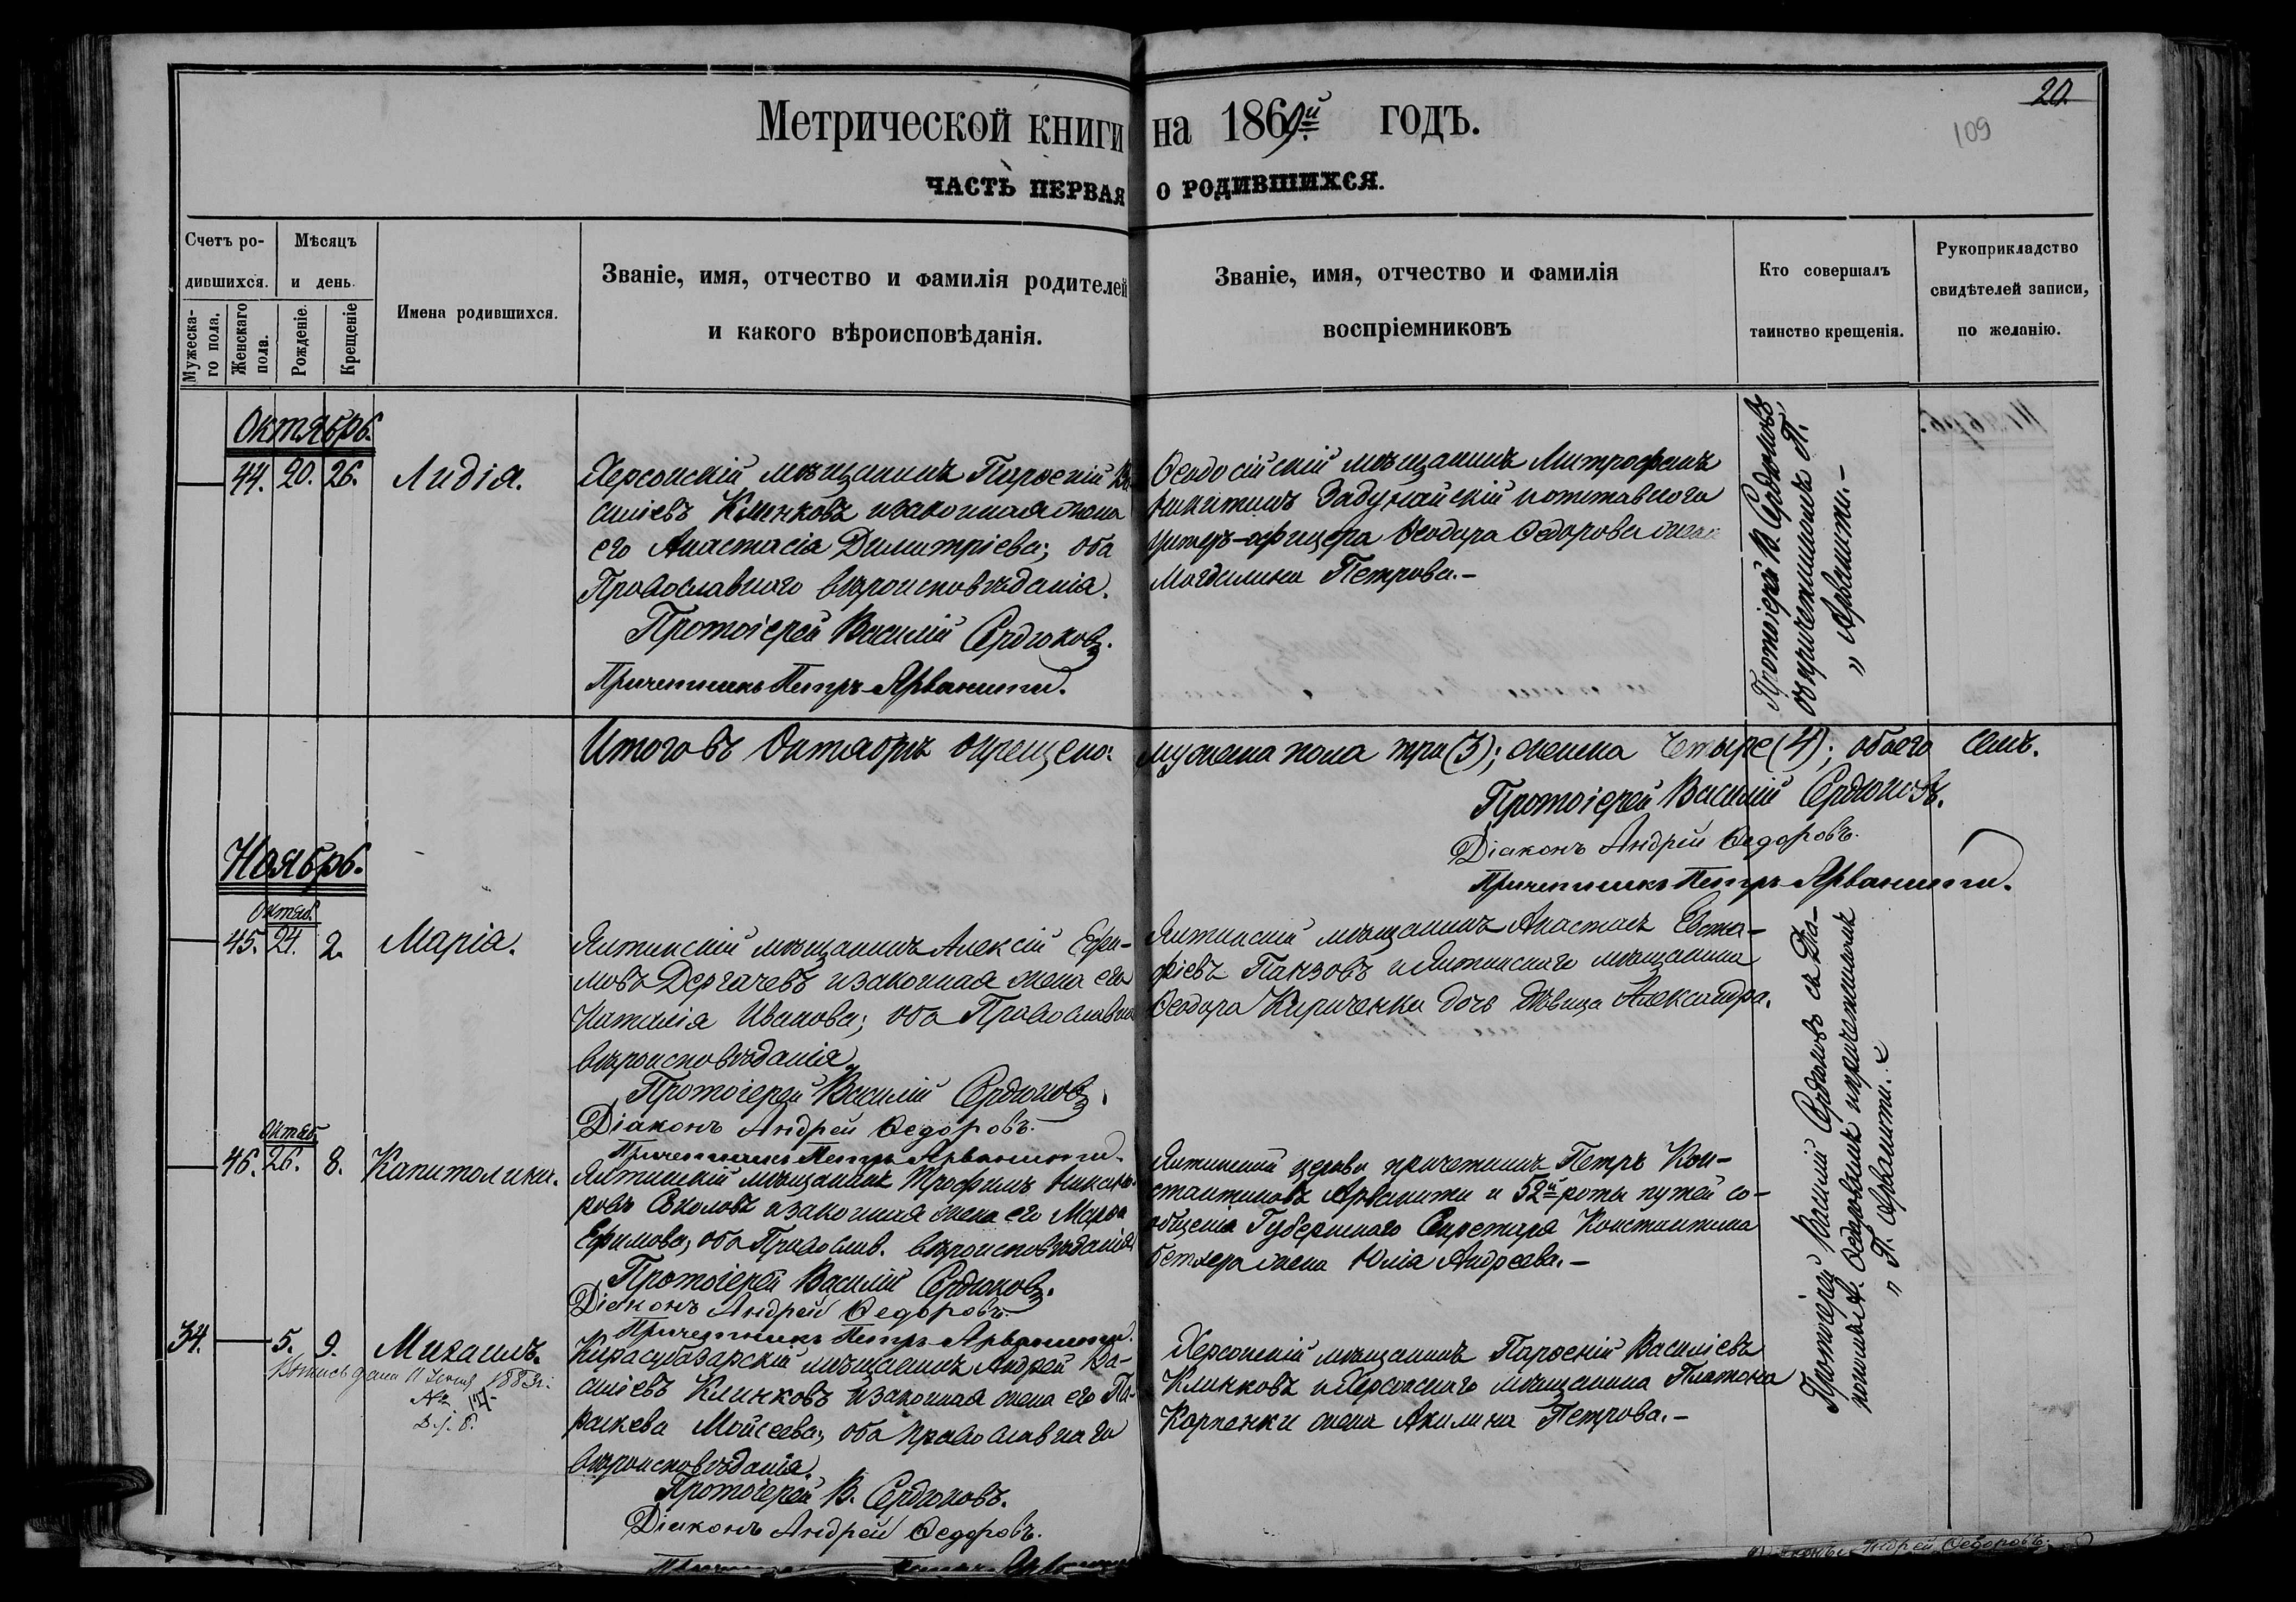 20.
109
Метрической книги на 1869й годъ.
ЧАСТЬ ПЕРВАЯ О РОДИВШИХСЯ.
Счетъ ро-
дившихся.
Мужеска-
го пола.
Женскаго
пола.
Мѣсяцъ
и день.
Рожденіе.
Крещеніе
Имена родившихся.
Званіе, имя, отчество и фамилія родителей
и какого вѣроисповѣданія.
Званіе, имя, отчество и фамилія
воспріемниковъ
Кто совершалъ
таинство крещенія.
Рукоприкладство
свидѣтелей записи,
по желанію.
Октябрь.
44. 20. 26. Лидія.
Херсонскій мѣщанинъ Парѳеній Ва-
силіевъ Клинковъ и законная жена
его Анастасія Димитріева; оба
Православного вѣроисповѣданія.
Протоіерей Василій Сердюковъ.
Причетникъ Петръ Арванити.
Ѳеодосійскій мѣщанинъ Митрофанъ
Никитинъ Задунайскій и отставного
унтеръ-офицера Ѳеодора Ѳедорова жена
Магдалина Петрова.-
Протоіерей В. Сердюковъ
съ причетникомъ П.
„ Арванити.-
Итого въ Октябрѣ окрещено: мужеска пола три (3); женска четыре (4); обоего семь.
Протоіерей Василій Сердюковъ.
Діаконъ Андрей Ѳедоровъ.
Причетникъ Петръ Арванити.
Ноябрь.
Октяб.
45. 24. 2. Марія.
Ялтинскій мѣщанинъ Алексій Ефи-
мовъ Дергачевъ и законная жена его
Наталія Иванова; оба Православна
вѣроисповѣданія.
Протоіерей Василій Сердюковъ.
Діаконъ Андрей Ѳедоровъ.
Причетникъ Петръ Арванити.
Ялтинскій мѣщанинъ Анастасъ Евста-
фіевъ Панзовъ и Ялтинскаго мѣщанина
Ѳеодора Кириченки дочь дѣвица Александра.
Октяб.
46. 26. 8. Капитолина.
Ялтинскій мѣщанинъ Трофимъ Никано-
ровъ Соколовъ и законная жена его Марѳа
Ефимова; оба Православ. вѣроисповѣданія.
Протоіерей Василій Сердюковъ.
Діаконъ Андрей Ѳедоровъ.
Причетникъ Петръ Арванити.
Ялтинской церкви причетникъ Петръ Кон-
стантиновъ Арванити и 52й роты путей со-
общенія Губернскаго Секретаря Константина
жена Юлія Андреева.-
Протоіерей Василій Сердюковъ съ Діа-
кономъ А. Ѳедоровымъ и причетникомъ
„ П. Арванити.-
34. 5. 9. Михаилъ.
дана 11 1883г.
№ 14
Карасубазарскій мѣщанинъ Андрей Ва-
силіевъ Клинковъ и законная жена его Па-
раскева Мойсеева; оба православнаго
вѣроисповѣданія.
Протоіерей В. Сердюковъ.
Діаконъ Андрей Ѳедоровъ.
Херсонскій мѣщанинъ Парѳеній Василіевъ
Клинковъ и Херсонскаго мѣщанина Платона
Карпенки жена Акилина Петрова.-
Діаконъ Андрей Ѳедоровъ.